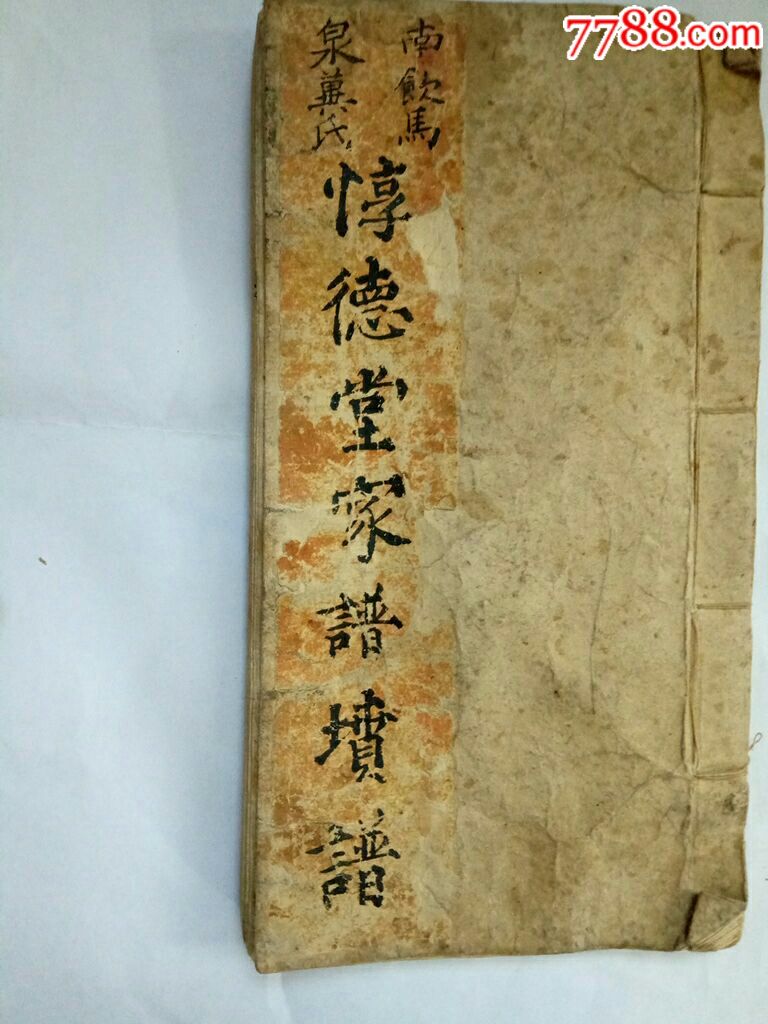 7788.com
南飲馬
泉 氏
惇德堂家譜墳譜